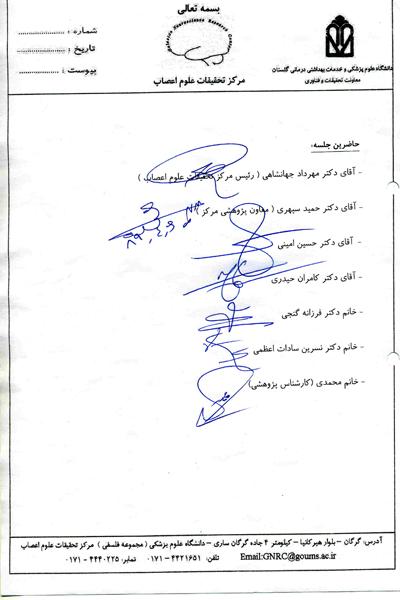 بسمه تعالی
Golestan Neuroscience Research Center
مرکز تحقیقات علوم اعصاب
شماره :
تاریخ :
پیوست :
دانشگاه علوم پزشکی و خدمات بهداشتی درمانی گلستان
معاونت تحقیقات و فناوری
حاضرین جلسه:
- آقای دکتر مهرداد جهانشاهی ( رئیس مرکز تحقیقات علوم اعصاب )
- آقای دکتر حمید سپهری ( معاون پژوهشی مرکز )
- آقای دکتر حسین امینی
- آقای دکتر کامران حیدری
- خانم دکتر فرزانه گنجی
- خانم دکتر نسرین سادات اعظمی
- خانم محمدی (کارشناس پژوهشی)
آدرس: گرگان - بلوار هیرکانیا - کیلومتر ۴ جاده گرگان ساری – دانشگاه علوم پزشکی ( مجموعه فلسفی ) مرکز تحقیقات علوم اعصاب
Email:GNRC@goums.ac.ir تلفن: ۴۴۲۱۶۵۱ - ۰۱۷۱ نمابر: ۴۴۴۰۲۲۵ - ۰۱۷۱